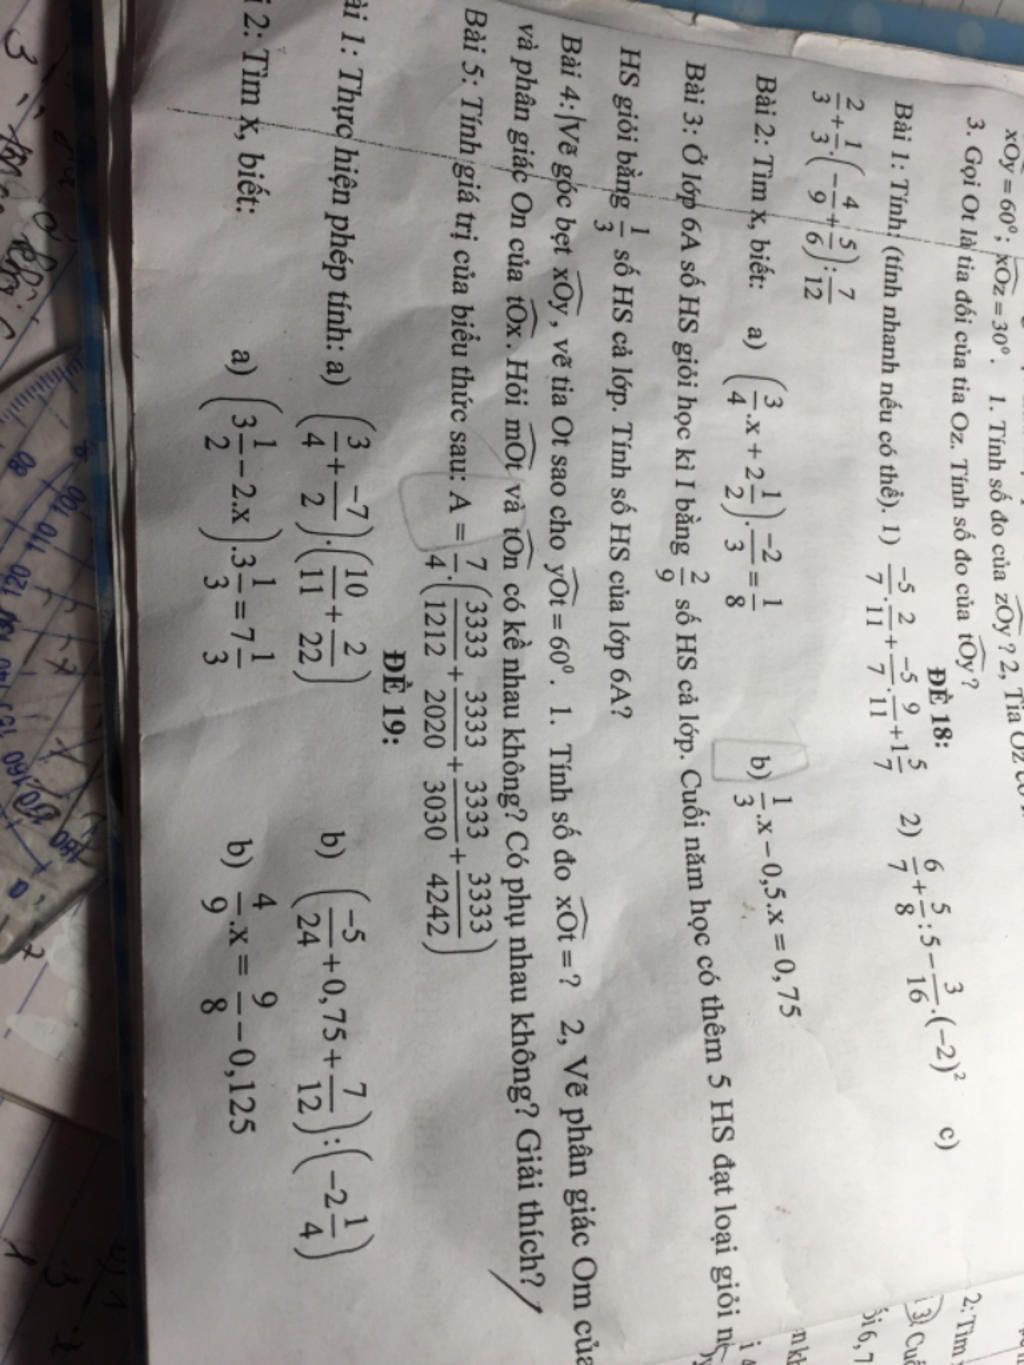 xOy = 60⁰; xOz = 30⁰. 1. Tính số đo của zOy? 2, Tia Oz
3. Gọi Ot là tia đối của tia Oz. Tính số đo của tOy?
ĐỀ 18:
Bài 1: Tính: (tính nhanh nếu có thể). 1) -5/7 . 2/11 + -5/7 . 9/11 + 1 5/7 2) 6/7 + 5/8 : 5 - 3/16 . (-2)² c)
2/3 + 1/3 . (-4/9 + 5/6) : 7/12
Bài 2: Tìm x, biết: a) (3/4 . x + 2 1/2) . -2/3 = 1/8 b) 1/3 . x - 0,5.x = 0,75
Bài 3: Ở lớp 6A số HS giỏi học kì I bằng 2/9 số HS cả lớp. Cuối năm học có thêm 5 HS đạt loại giỏi
HS giỏi bằng 1/3 số HS cả lớp. Tính số HS của lớp 6A?
Bài 4: Vẽ góc bẹt xOy, vẽ tia Ot sao cho yOt = 60⁰. 1. Tính số đo xOt = ? 2, Vẽ phân giác Om của
và phân giác On của tOx. Hỏi mOt và tOn có kề nhau không? Có phụ nhau không? Giải thích?
Bài 5: Tính giá trị của biểu thức sau: A = 7/4 . (3333/1212 + 3333/2020 + 3333/3030 + 3333/4242)
ĐỀ 19:
ài 1: Thực hiện phép tính: a) (3/4 + -7/2) . (10/11 + 2/22) b) (-5/24 + 0,75 + 7/12) : (-2 1/4)
i 2: Tìm x, biết: a) (3 1/2 - 2.x) . 3 1/3 = 7 1/3 b) 4/9 . x = 9/8 - 0,125
2: Tìm
3. Cu
ối 6, 7